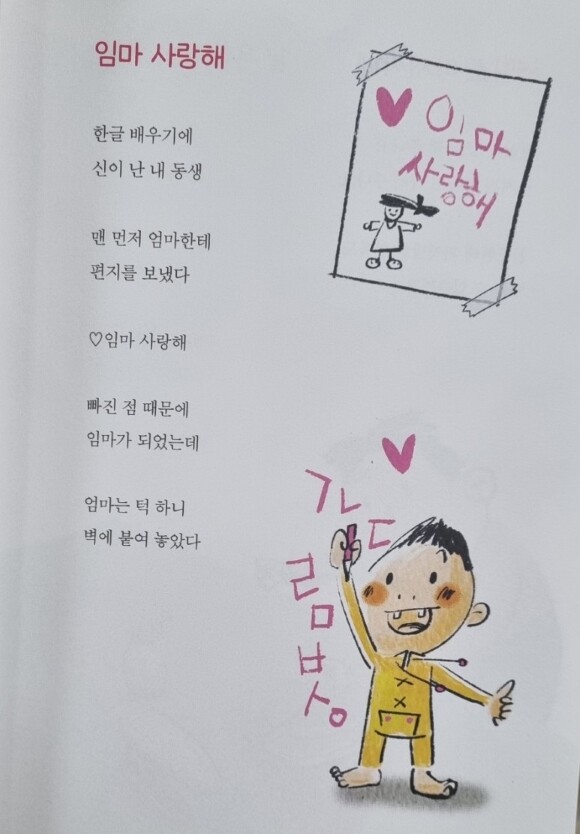 임마 사랑해
한글 배우기에
신이 난 내 동생
맨 먼저 엄마한테
편지를 보냈다
♡임마 사랑해
빠진 점 때문에
임마가 되었는데
엄마는 턱 하니
벽에 붙여 놓았다
♥임마
사랑해
ㄱㄴㄷㄹㅁㅂㅅㅇ